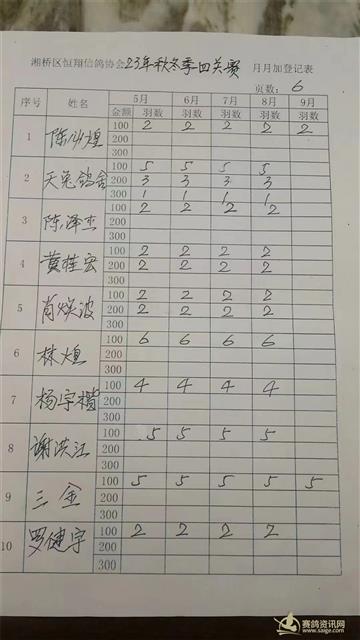 湘桥区恒翔信鸽协会23年秋冬季四关赛 月月加登记表
页数：6
序号 姓名 5月 6月 7月 8月 9月
金额 羽数 羽数 羽数 羽数 羽数
1 陈少煌 100 2 2 2 2 2
200
300
2 天兔鸽舍 100 5 5 5 5
200 3 3 3 3
300 1 1 1 1
3 陈泽杰 100 2 2 2 2
200
300
4 黄桂宏 100 2 2 2 2
200 2 2 2 2
300
5 肖焕波 100 2 2 2 2
200 2 2 2 2
300
6 林煌 100 6 6 6 6
200
300
7 杨宇楷 100 4 4 4 4
200
300
8 谢洪江 100 5 5 5 5
200
300
9 三金 100 5 5 5 5 5
200
300
10 罗健宇 100 2 2 2 2
200
300
赛鸽资讯网
www.saige.com